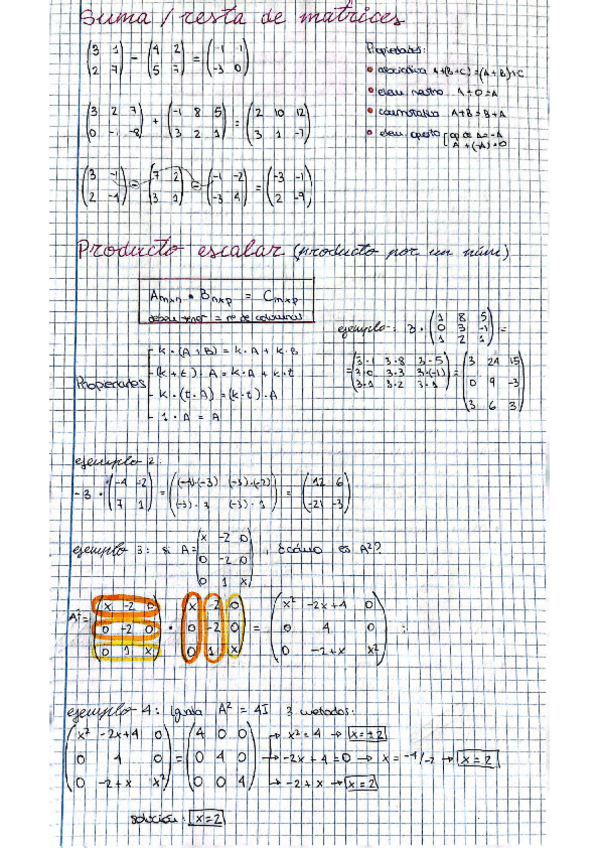 Suma / resta de matrices
(3 1 / 2 7) - (4 2 / 5 7) = (-1 -1 / -3 0)
Propiedades:
• asociativa A+(B+C)=(A+B)+C
• elem. neutro A+0=A
• conmutativa A+B=B+A
• elem. opuesto [op de A=-A
A+(-A)=0
(3 2 7 / 0 -1 -8) + (-1 8 5 / 3 2 1) = (2 10 12 / 3 1 -7)
(3 -1 / 2 -4) - (7 2 / 3 1) - (-1 -2 / -3 4) = (-3 -1 / 2 -9)
Producto escalar (producto por un núm)
Amxn • Bnxp = Cmxp
= nº de columnas
ejemplo: 3 • (1 8 5 / 0 3 -1 / 1 2 1) =
= (3·1 3·8 3·5 / 3·0 3·3 3·(-1) / 3·1 3·2 3·1) = (3 24 15 / 0 9 -3 / 3 6 3)
Propiedades
- k·(A+B)=k·A+k·B
- (k+t)·A=k·A+k·t
- k·(t·A)=(k·t)·A
- 1·A=A
ejemplo 2:
-3 • (-4 -2 / 7 1) = ((-4)·(-3) (-3)·(-2) / (-3)·7 (-3)·1) = (12 6 / -21 -3)
ejemplo 3: si A= (x -2 0 / 0 -2 0 / 0 1 x), ¿cómo es A²?
A²= (x -2 0 / 0 -2 0 / 0 1 x) • (x -2 0 / 0 -2 0 / 0 1 x) = (x² -2x+4 0 / 0 4 0 / 0 -2+x x²);
ejemplo 4: Iguala A² = 4I 3 metodos:
(x² -2x+4 0 / 0 4 0 / 0 -2+x x²) = (4 0 0 / 0 4 0 / 0 0 4)
→ x²=4 → x=±2
→ -2x+4=0 → x=-4/-2 → x=2
→ -2+x → x=2
solución: x=2